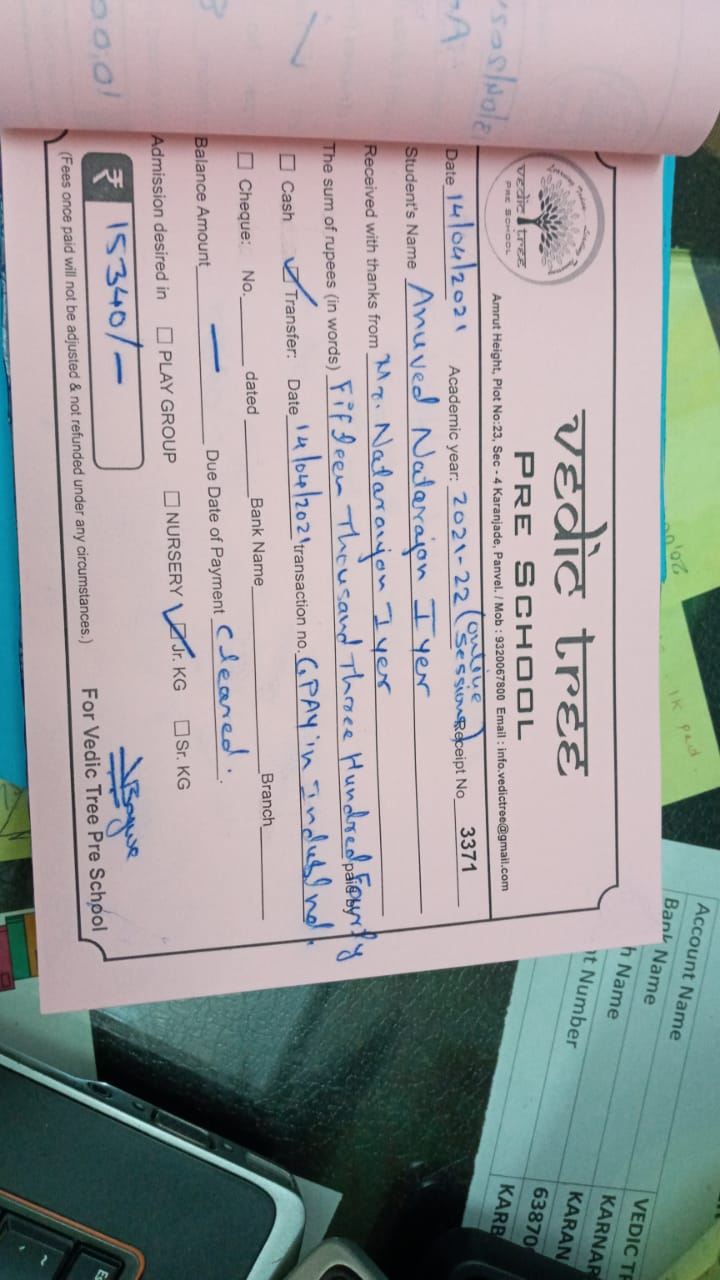 vedic tree
PRE SCHOOL
VEDIC TREE
PRE SCHOOL
Amrut Height, Plot No:23, Sec - 4 Karanjade, Panvel. / Mob : 9320067800 Email : info.vedictree@gmail.com
Date 14/04/2021 Academic year: 2021-22 (online session) Receipt No 3371
Student's Name Anuved Natarajan Iyer
Received with thanks from Mr. Natarajan Iyer
The sum of rupees (in words) Fifteen Thousand Three Hundred Fourty paid by
Cash Transfer: Date 14/04/2021 transaction no. GPAY in IndusInd.
Cheque: No. dated Bank Name Branch
Balance Amount — Due Date of Payment Cleared.
Admission desired in PLAY GROUP NURSERY Jr. KG Sr. KG
₹ 15340/-
(Fees once paid will not be adjusted & not refunded under any circumstances.)
For Vedic Tree Pre School
Account Name
Bank Name
h Name
nt Number
VEDIC T
KARNAR
KARAN
63870
KARB
1K paid